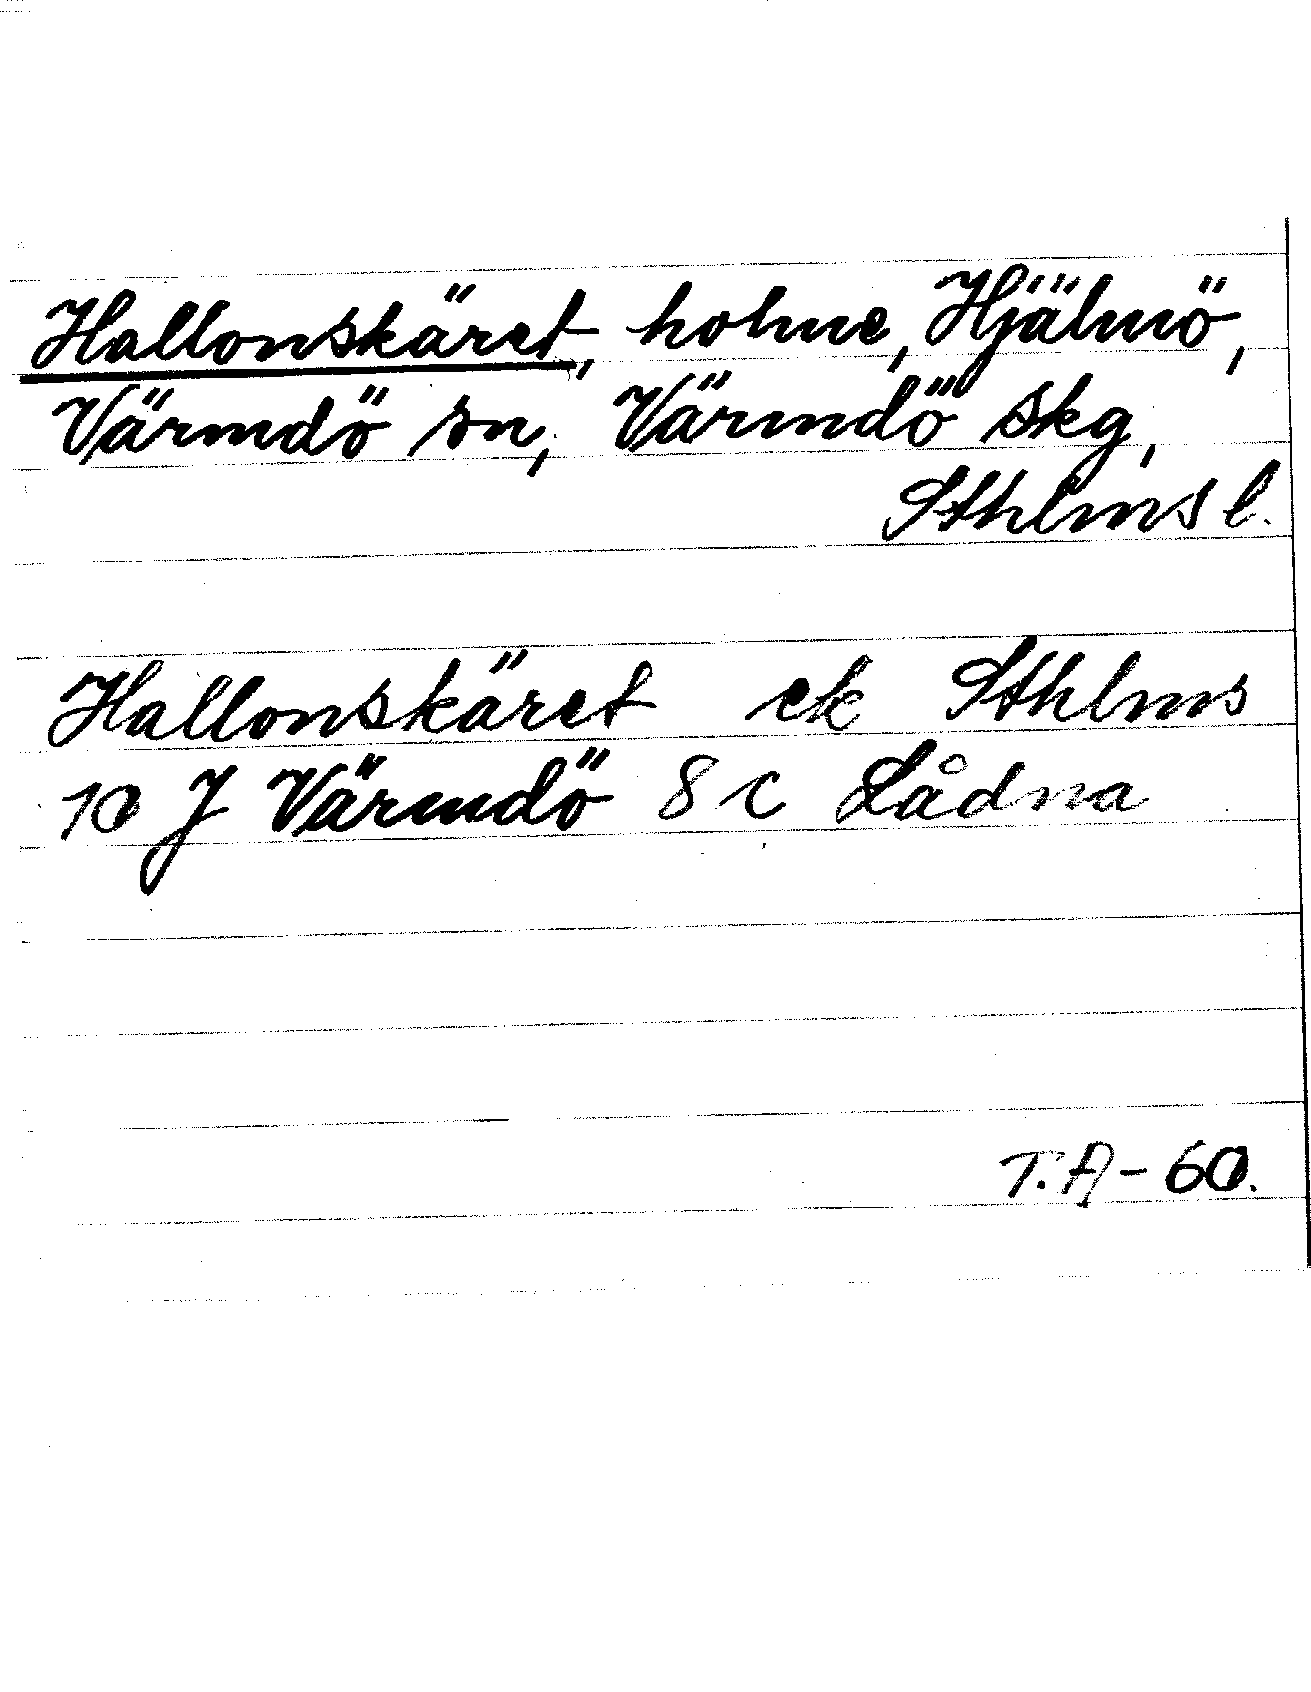 Hallonskäret, holme, Hjälmö,
Värmdö sn, Värmdö skg,
Sthlms l.
Hallonskäret ek Sthlms
10 J Värmdö 8 c Lådna
T.A-60.